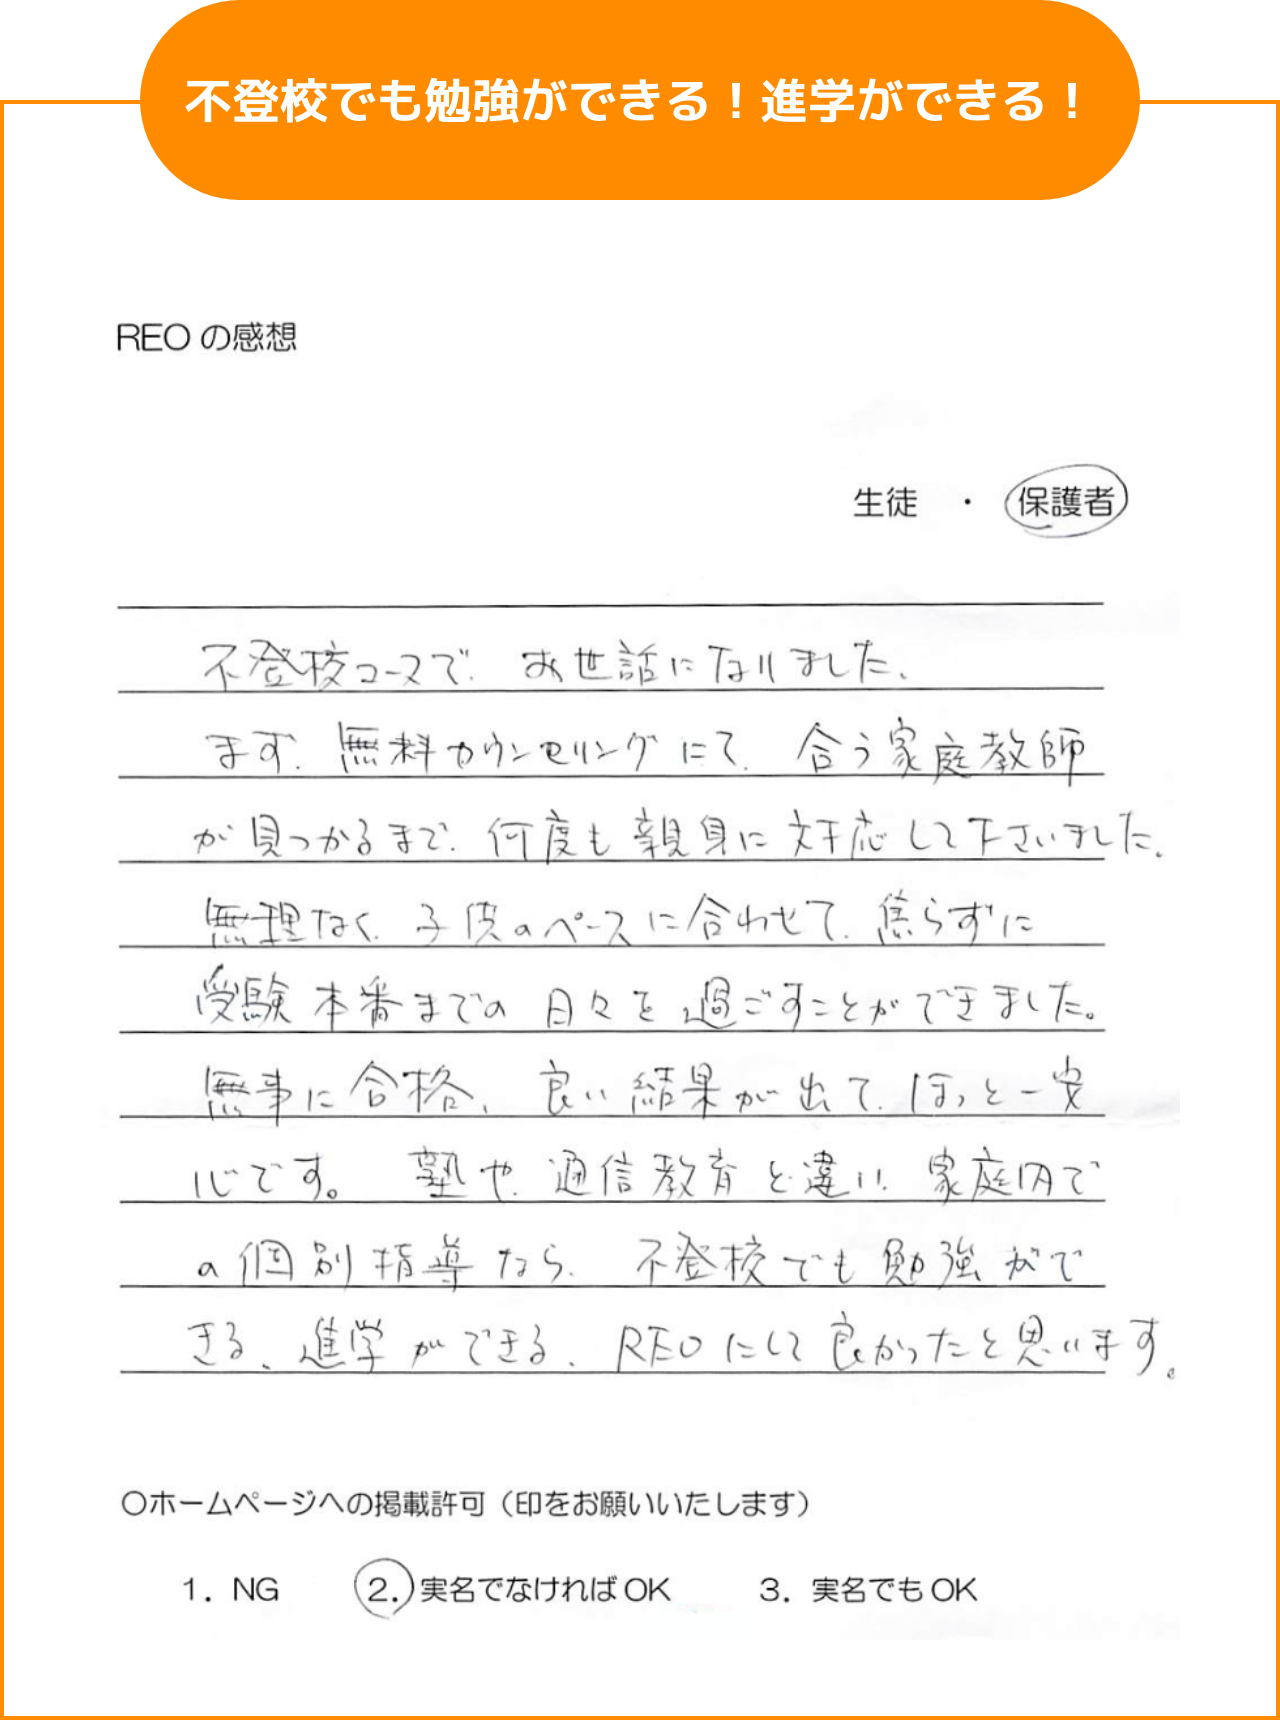 不登校でも勉強ができる！進学ができる！
REOの感想
生徒　・　保護者
不登校コースで、お世話になりました、
まず、無料カウンセリングにて、合う家庭教師
が見つかるまで、何度も親身に対応して下さいました、
無理なく、子供のペースに合わせて、焦らずに
受験本番までの日々を過ごすことができました。
無事に合格、良い結果が出て、ほっと一安
心です。塾や、通信教育と違い、家庭内で
の個別指導なら、不登校でも勉強がで
きる、進学ができる、REOにして良かったと思います。
〇ホームページへの掲載許可（印をお願いいたします）
1．NG　2．実名でなければOK　3．実名でもOK